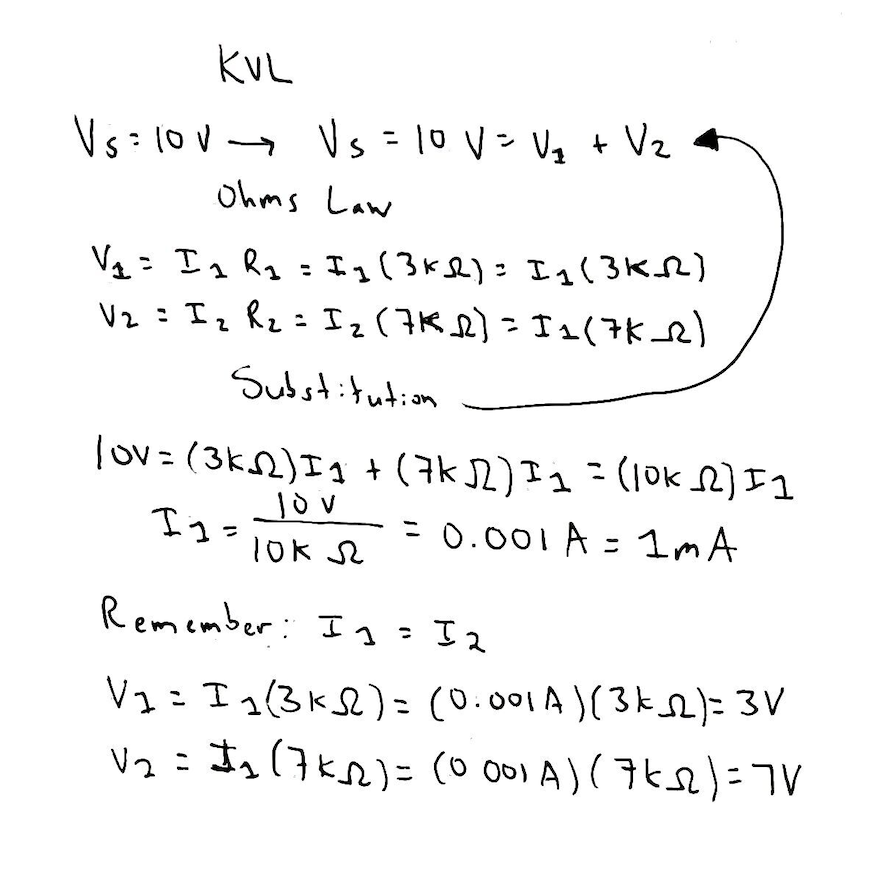 KVL
Vs = 10 V → Vs = 10 V = V1 + V2
Ohms Law
V1 = I1 R1 = I1(3kΩ) = I1(3kΩ)
V2 = I2 R2 = I2(7kΩ) = I1(7kΩ)
Substitution
10V = (3kΩ)I1 + (7kΩ)I1 = (10kΩ)I1
I1 = 10 V / 10k Ω = 0.001 A = 1mA
Remember: I1 = I2
V1 = I1(3kΩ) = (0.001A)(3kΩ) = 3V
V2 = I1(7kΩ) = (0 001A)(7kΩ) = 7V